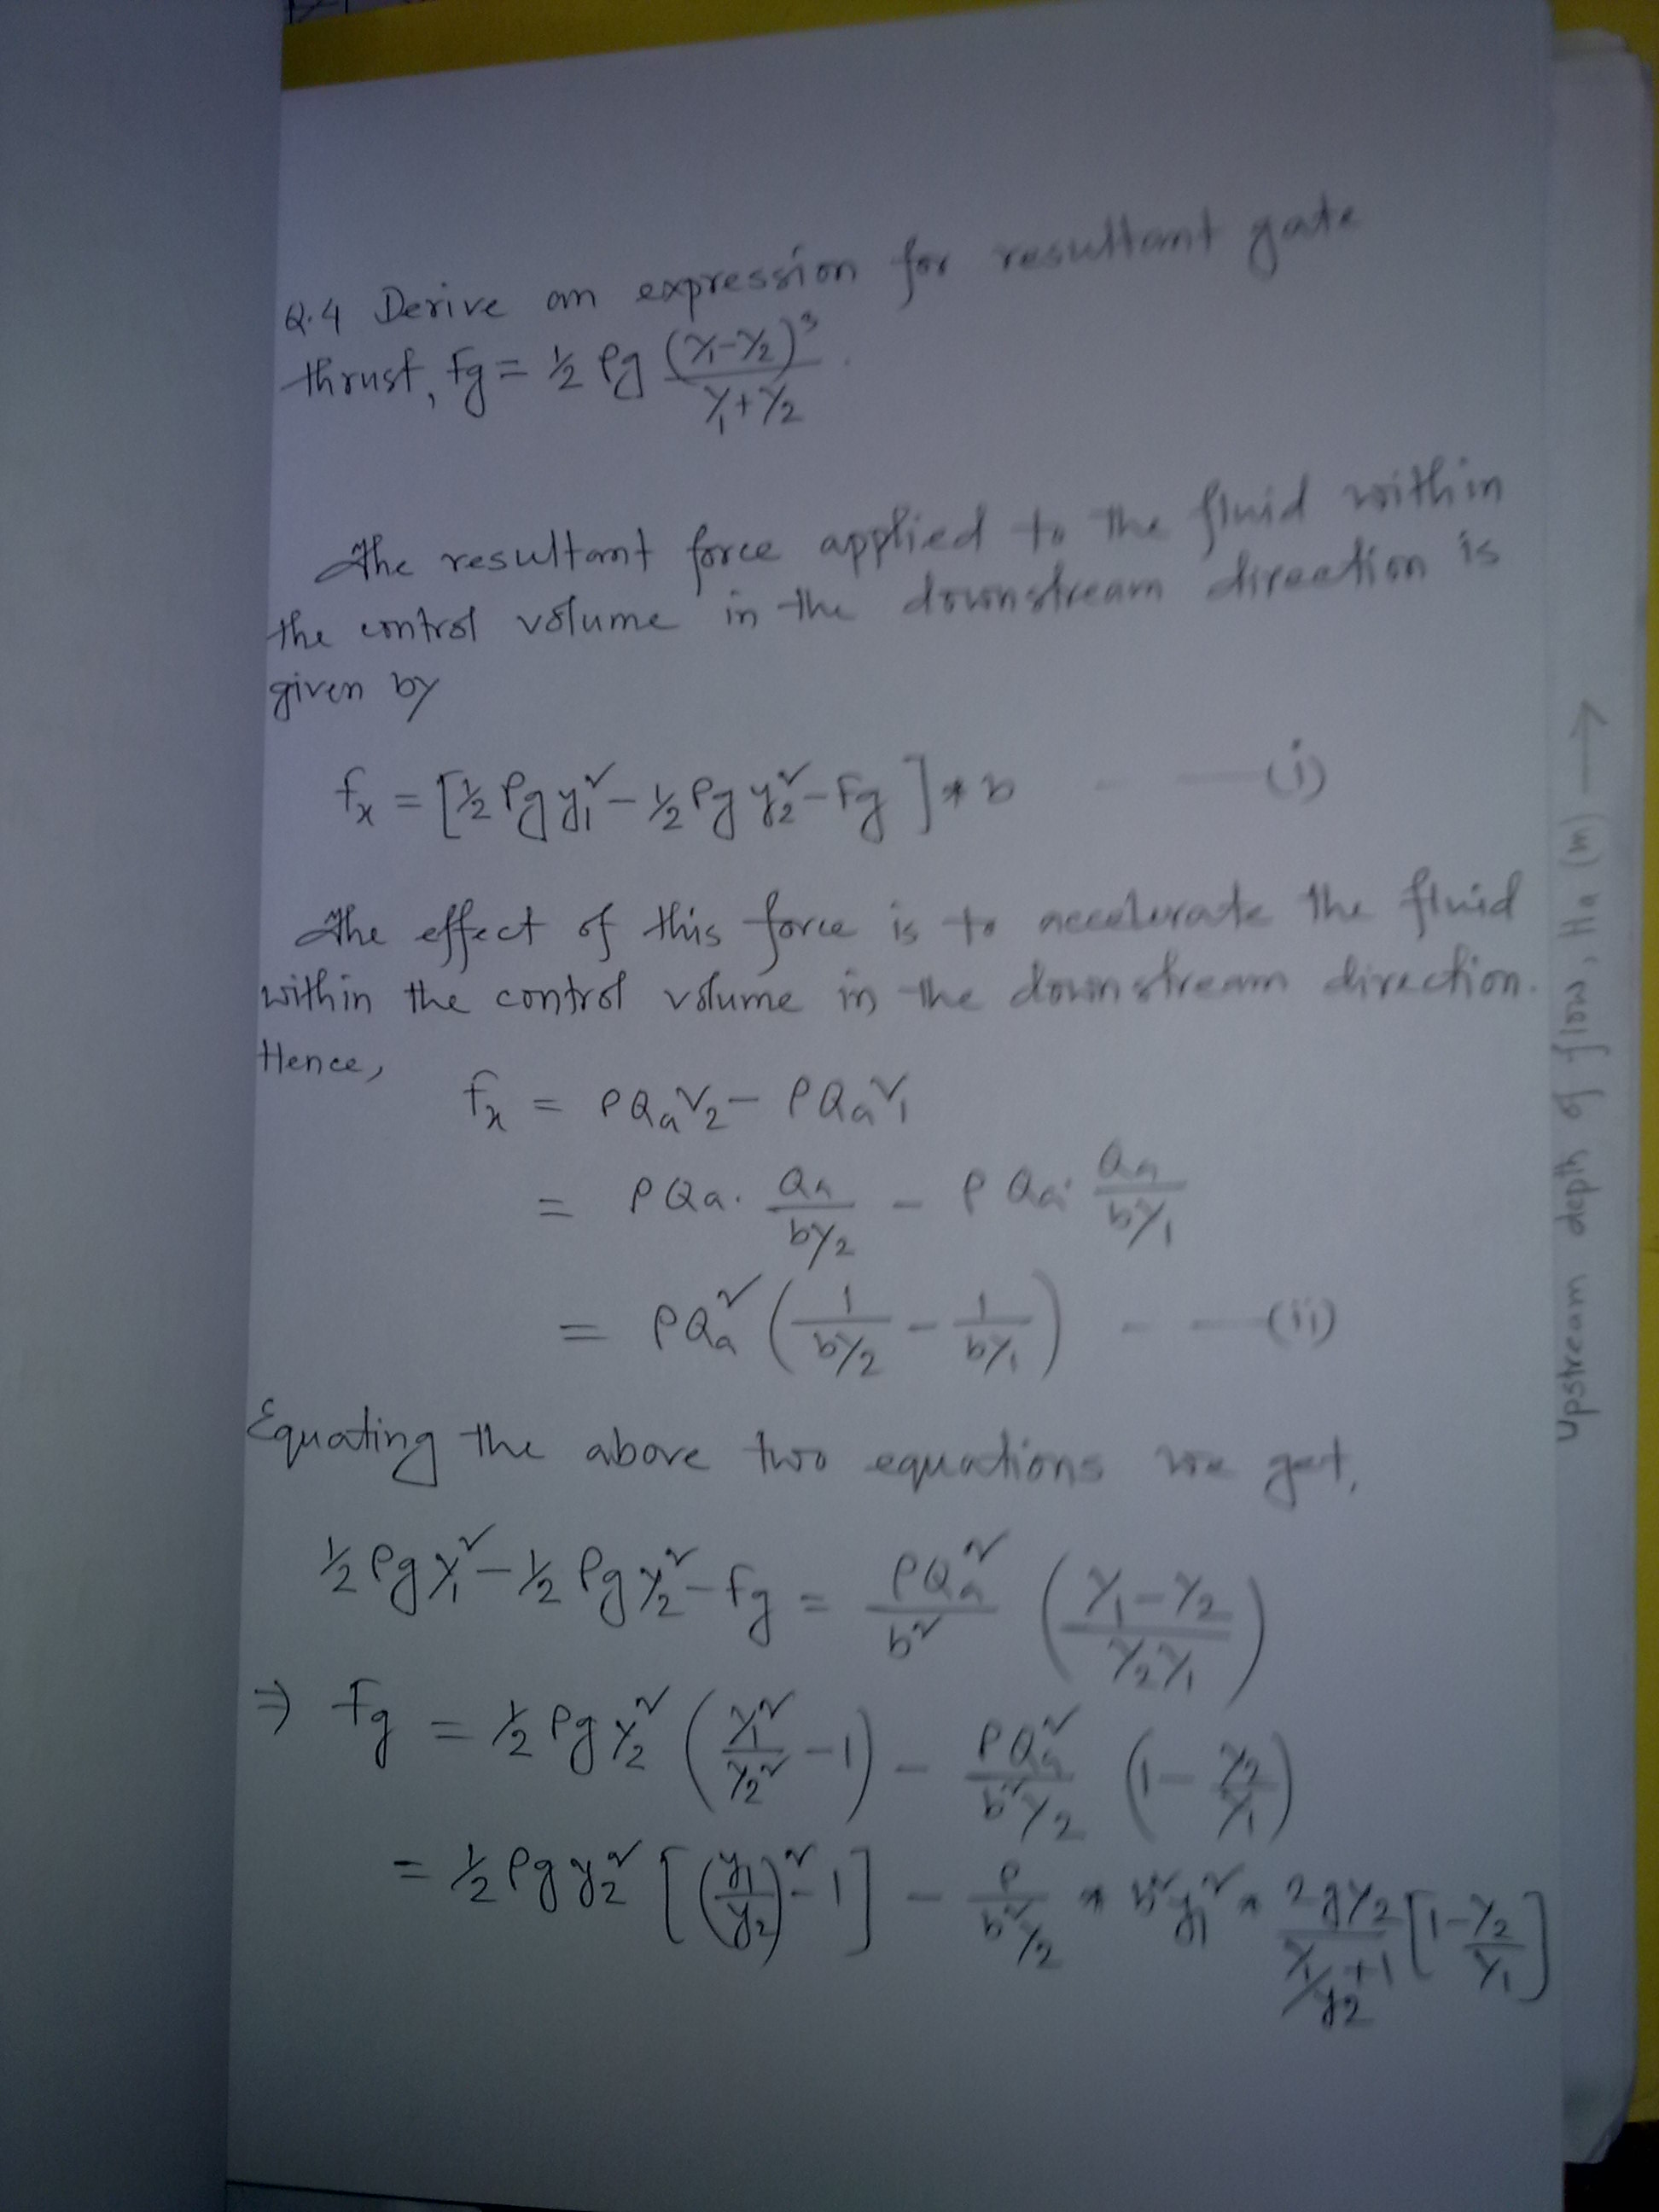 Q.4 Derive an expression for resultant gate
thrust, Fg = ½ ρg (Y₁-Y₂)³ / Y₁+Y₂ .
The resultant force applied to the fluid within
the control volume in the downstream direction is
given by
Fx = [½ ρg y₁² - ½ ρg y₂² - Fg ] * b - - (i)
The effect of this force is to accelerate the fluid
within the control volume in the downstream direction.
Hence,
Fx = ρQaV₂ - ρQaV₁
= ρQa. Qa/bY₂ - ρQa. Qa/bY₁
= ρQa² (1/bY₂ - 1/bY₁) - - (ii)
Equating the above two equations we get,
½ ρg Y₁² - ½ ρg Y₂² - Fg = ρQa²/b² (Y₁-Y₂ / Y₂Y₁)
⇒ Fg = ½ ρg Y₂² (Y₁²/Y₂² - 1) - ρQa²/b²Y₂ (1 - Y₂/Y₁)
= ½ ρg y₂² [(y₁/y₂)² - 1] - ρ/b²Y₂ * b²y₁² * 2gY₂ / (Y₁/y₂ + 1) [1 - Y₂/Y₁]
Upstream depth of flow, Ha (m) →